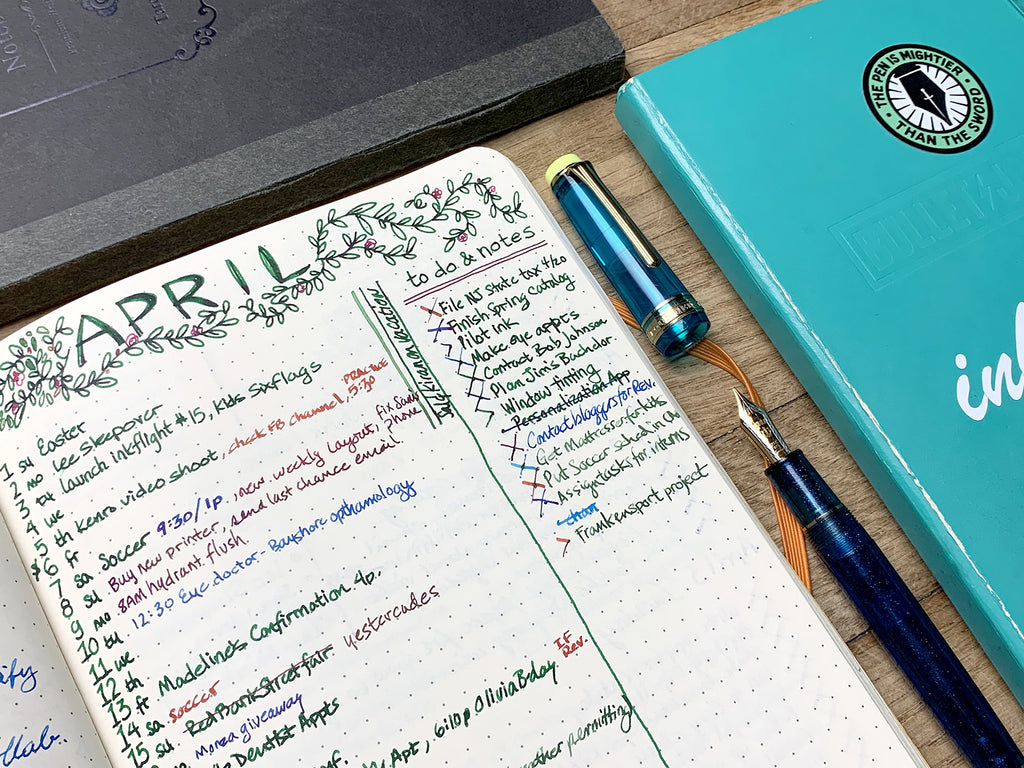 APRIL
1 su Easter
2 mo Lee Sleepover
3 tu launch inkflight #15, Kids Sixflags
4 we
5 th Kenro video shoot, check FB channel, PRACTICE 5:30
$6 fr
7 sa Soccer 9:30/1p, new weekly layout,
8 su Buy new printer, send last chance email
9 mo 8AM hydrant flush
10 tu 12:30 Eye doctor - Bayshore opthamology
11 we
12 th
13 fr Madeline's Confirmation 4p
14 sa soccer
15 su Red Bank Street fair yestercades
Monza giveaway
Dentist Appts
Apt, 6:10p Olivia B-day IF Rev.
permitting
to do & notes
File NJ state tax 4/20
Finish Spring Catalog
Pilot ink
Make eye appts
Contact Bob Johnson
Plan Jim's Bachelor
Window Tinting
Personalization App
Contact bloggers for Rev.
Get Mattress for kids
Put Soccer Sched in
Assign tasks for interns
Frankensport project
THE PEN IS MIGHTIER
THAN THE SWORD
BULLET
ink